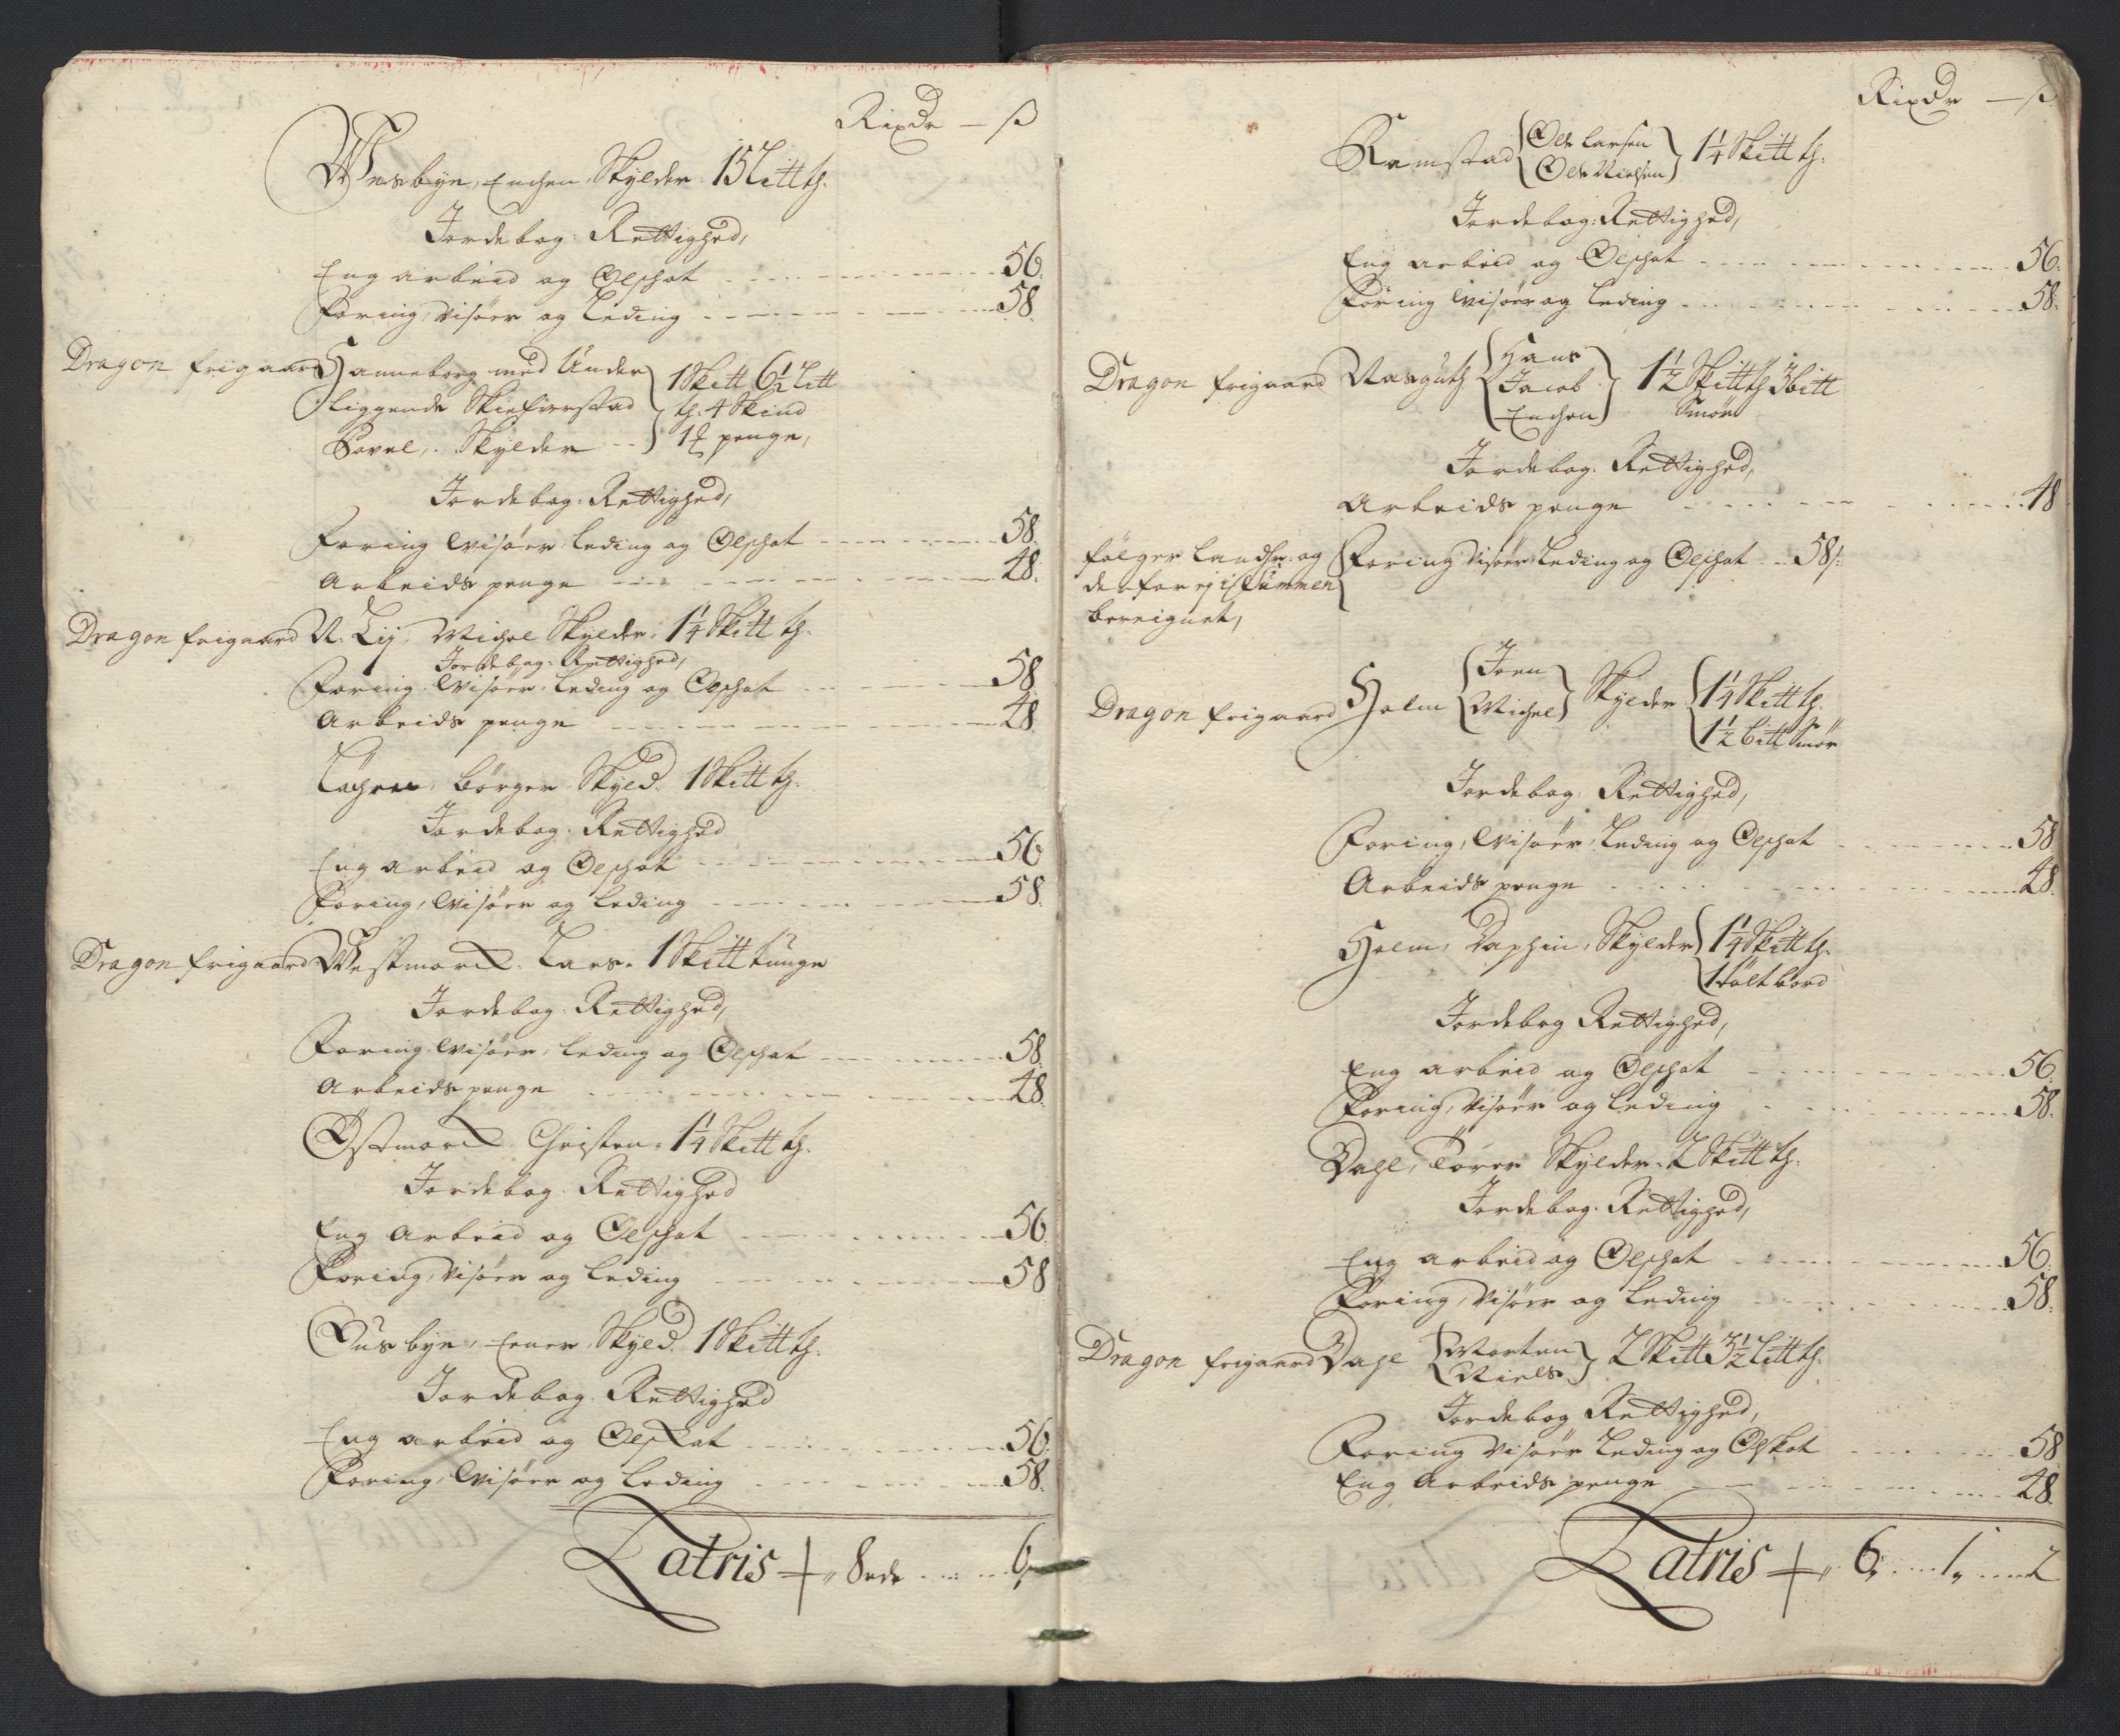 Rixdr — ß
Wesbye, Enchen Skylder 15 Litt tg.
Jordebog: Rettighed,
Eng arbeid og Ølschat 56.
Foring, Visører og Leding 58.
Dragon frigaard Hanneborg med Under
liggende Skiefierstad
Povel, Skylder
1 Skitt 6½ Litt
tg. 4 Skind
penge,
Jordebog: Rettighed,
Foring Wisører Leding og Ølschat 58.
Arbeids penge 48.
Dragon frigaard N. Lij, Michel Skylder 1¼ Skitt tg.
Jordebog: Rettighed,
Foring, Wisører, Leding og Ølschat 58
Arbeids penge 48
Børger Skyld. 1 Skitt tg.
Jordebog: Rettighed
Eng arbeid og Ølschat 56
Foring, Wisører og Leding 58.
Dragon frigaard Westmorck. Lars. 1 Skitt tunge
Jordebog: Rettighed,
Foring Wisører, Leding og Ølschat 58.
Arbeids penge 48.
Østmorck, Christen 1¼ Skitt tg.
Jordebog. Rettighed
Eng Arbeid og Ølschat 56.
Foring, Visører og Leding 58
Ousbye, Ener Skyld. 1 Skitt tg.
Jordebog. Rettighed
Eng arbeid og Ølskat 56.
Foring, Wisører og Leding 58.
Latris 8 rdr 6
Rixdr — ß
Ramstad Ole Larsen
Ole Nielsen
1¼ Skitt tg.
Jordebog: Rettighed,
Eng arbeid og Ølschat 56.
Foring Wisører og Leding 58.
Dragon frigaard Hans
Jacob
Enchen
1½ Skitt tg 3 bitt
Smør
Jordebog. Rettighed,
Arbeids penge 48
følger Landhr. og
derfor ej i Summen
bereignet,
Foring Visører Leding og Ølschat 58 ß.
Dragon frigaard Holm
Joen
Michel
Skylder
1¼ Skitt tg.
1½ bitt Smør
Jordebog: Rettighed,
Foring, Wisører, Leding og Ølschat 58.
Arbeids penge 48.
Holm, Daphin, Skylder 1¼ Skitt tg.
1 tolt bord
Jordebog Rettighed,
Eng arbeid og Ølschat 56.
Foring, Visører og Leding 58.
Dahl, Torer Skylder. 2 Skitt tg.
Jordebog. Rettighed,
Eng arbeid og Ølschat 56.
Foring, Visører og Leding 58.
Dragon frigaard Dahl
Morten
Niels
2 Skitt 3½ Litt tg.
Jordebog Rettighed,
Foring Visører Leding og Ølskat 58
Eng Arbeids penge 48.
Latris 6 1 2